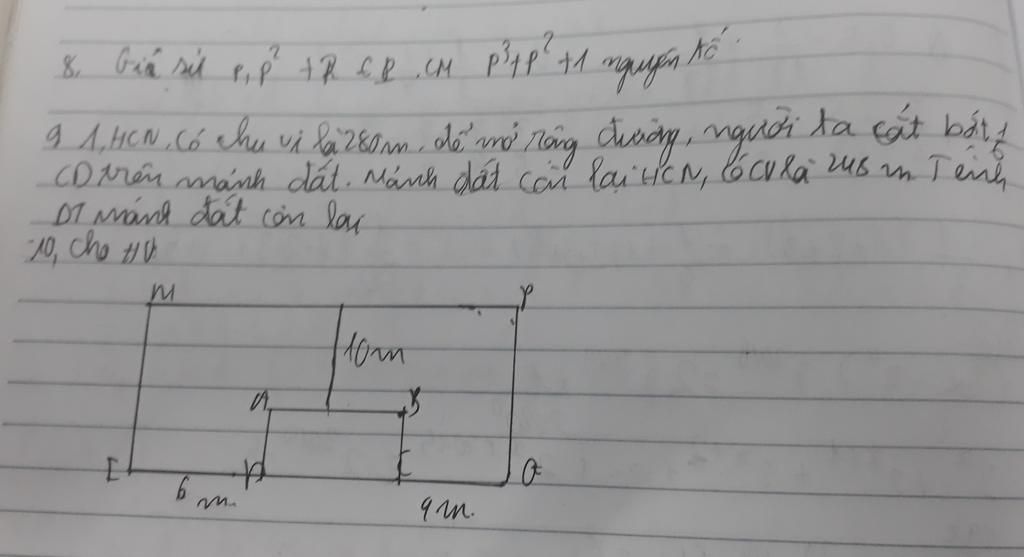 8, Giả sử p, p² + R CP. CM p³+p²+1 nguyên tố.
9 1, HCN, có chu vi là 280m. để mở rộng đường, người ta cắt bớt
CD trên mảnh đất. Mảnh đất còn lại HCN, có CV là m Tính
DT mảnh đất còn lại
10, Cho HV
M P
10m
A B
6 m
9m.